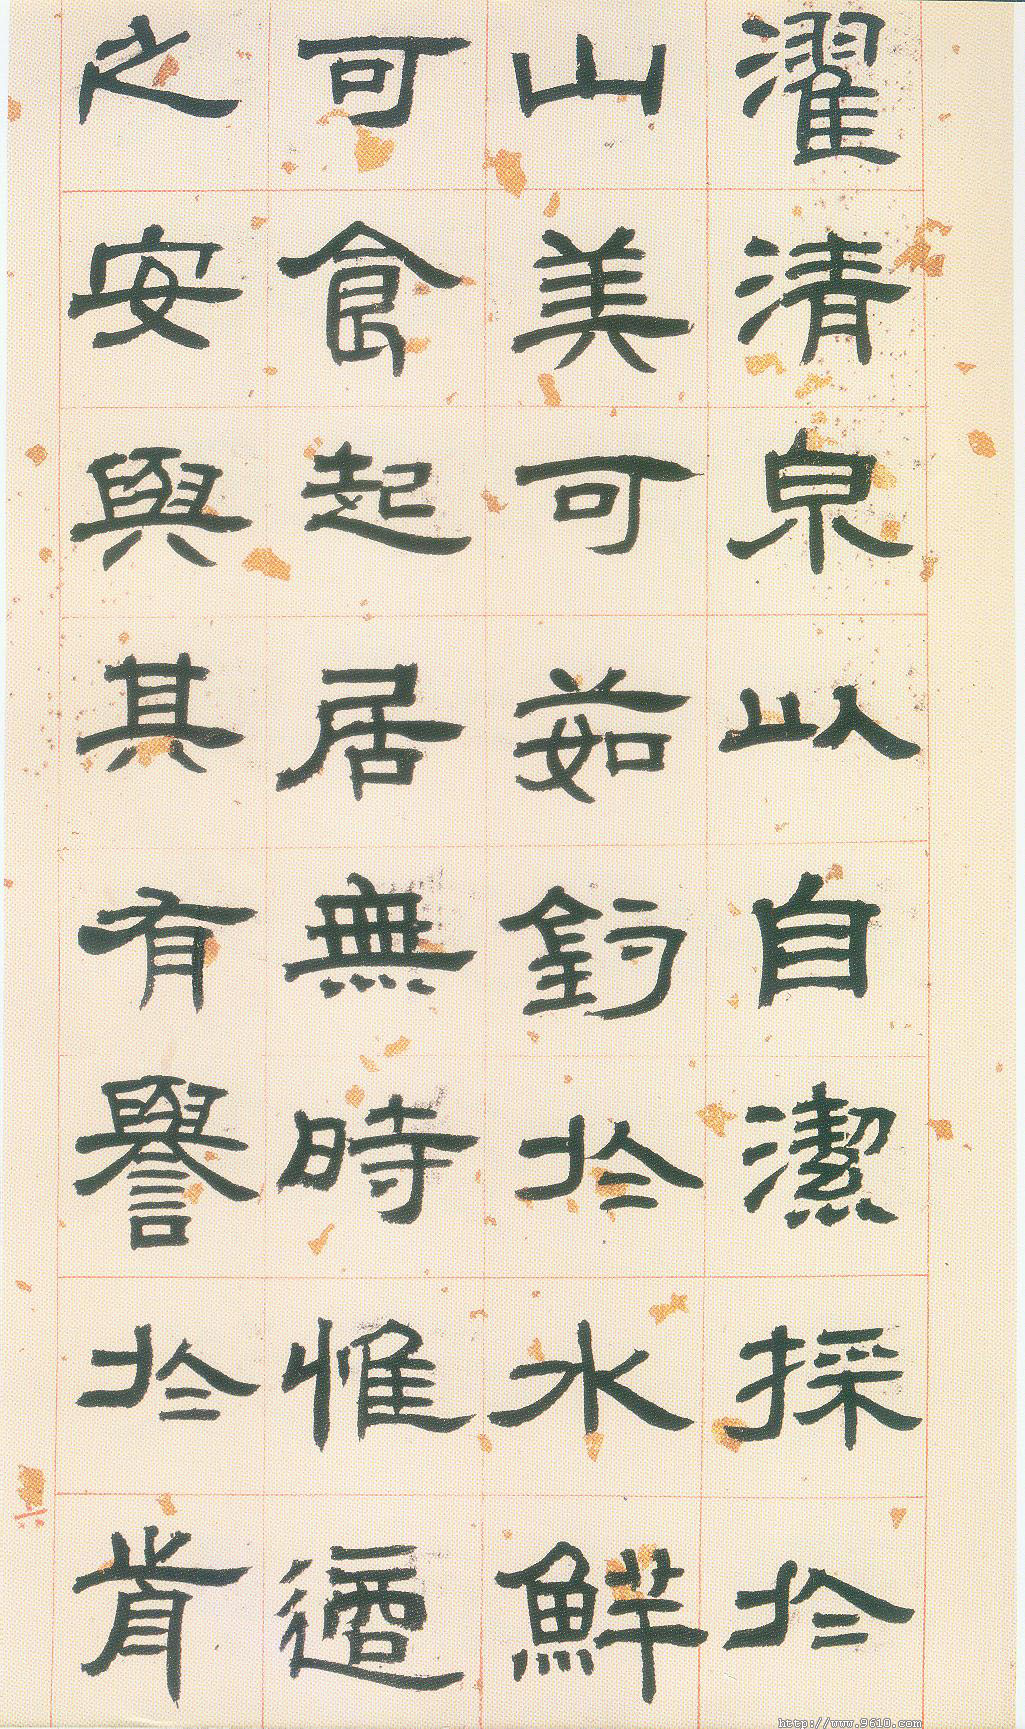 濯清泉以自潔採於
山美可茹釣於水鮮
可食起居無時惟適
之安與其有譽於前
http://www.9610.com